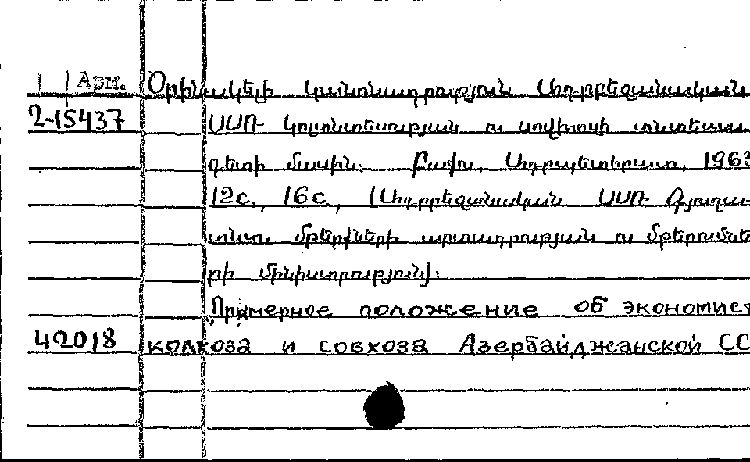 Арм. Օրինակելի կանոնադրություն Ադրբեջանական
2-15437 ՍՍՌ կոլտնտեսության ու սովխոզի տնտեսա-
գետի մասին: Բաքու, Ադրպետհրատ, 1963
12с., 16с., (Ադրբեջանական ՍՍՌ Գյուղա-
տնտ. մթերքների արտադրության ու մթերումնե-
րի մինիստրություն):
Примерное положение об экономист
42018 колхоза и совхоза Азербайджанской СС